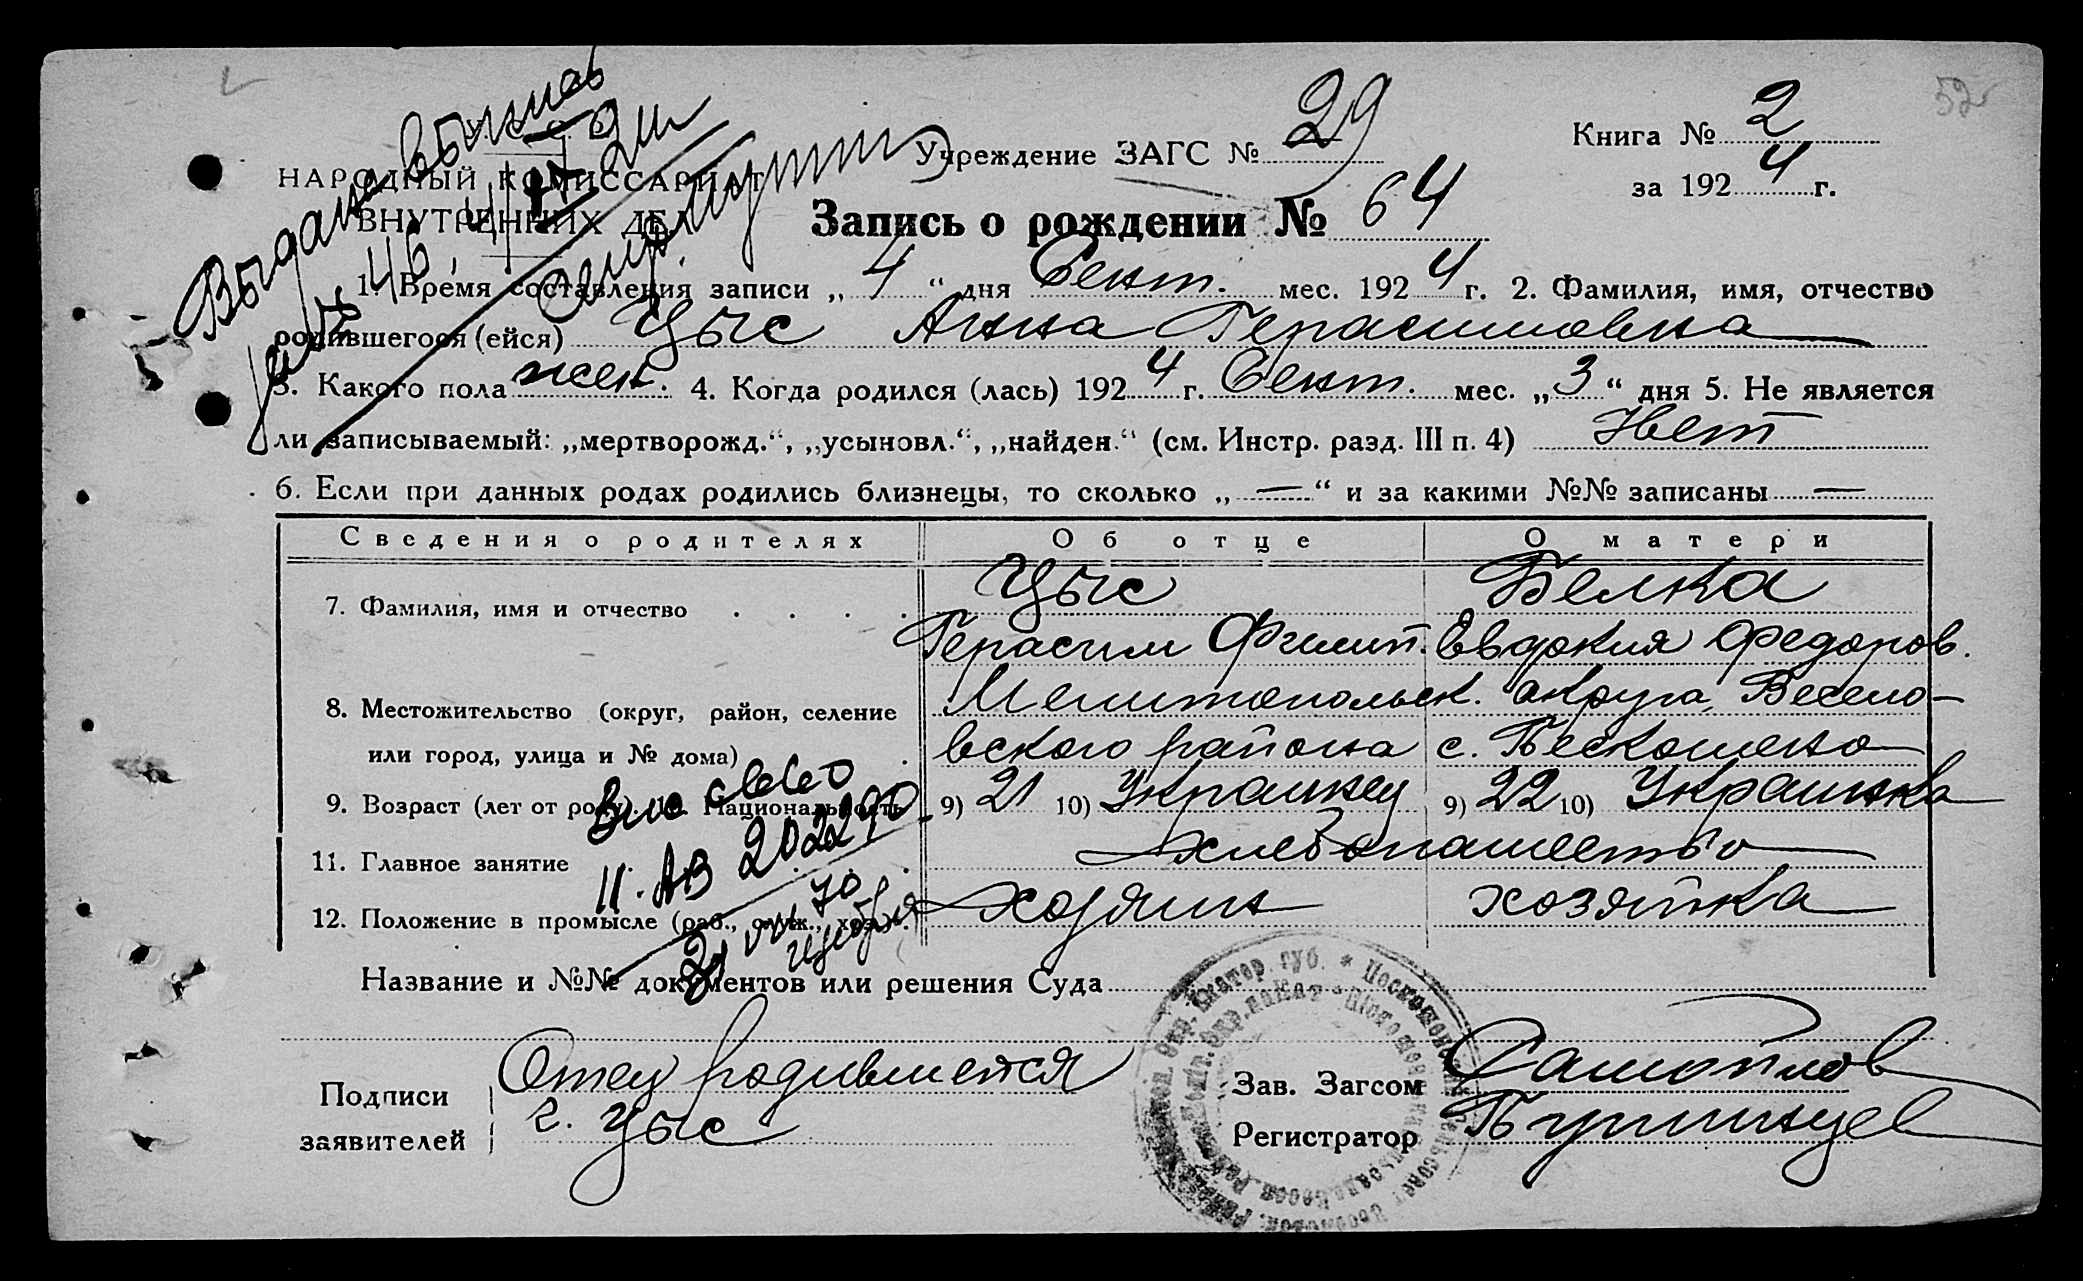 52
У. С. С. Р.
НАРОДНЫЙ КОМИССАРИАТ
ВНУТРЕННИХ ДЕЛ
Учреждение ЗАГС № 29
Книга № 2
за 1924 г.
Запись о рождении № 64
1. Время составления записи „4“ дня Сент. мес. 1924 г. 2. Фамилия, имя, отчество
родившегося (ейся) Цыс Анна Герасимовна
3. Какого пола жен. 4. Когда родился (лась) 1924 г. Сент. мес. „3“ дня 5. Не является
ли записываемый: „мертворожд.“, „усыновл.“, „найден.“ (см. Инстр. разд. III п. 4) Нет
6. Если при данных родах родились близнецы, то сколько „—“ и за какими №№ записаны —
Сведения о родителях Об отце О матери
7. Фамилия, имя и отчество Цыс Белка
Герасим Филип. Евдокия Федоров.
8. Местожительство (округ, район, селение Мелитопольск. округа, Весело-
или город, улица и № дома) вского района с. Пескошено
9. Возраст (лет от роду) 10. Национальность 9) 21 10) Украинец 9) 22 10) Украинка
11. Главное занятие хлебопашество
12. Положение в промысле (раб., служ., хоз.) хозяин хозяйка
II. АВ 202290
Название и №№ документов или решения Суда
Подписи Отец родившейся
заявителей Г. Цыс
Зав. Загсом Самойлов
Регистратор